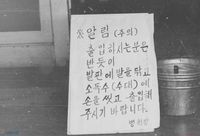 ※알림 (주의)
출입하시는분은
반듯이
발판에 발을 닦고
소독수 (수대) 에
손을 씻고 출입해
주시기 바랍니다.
병원장